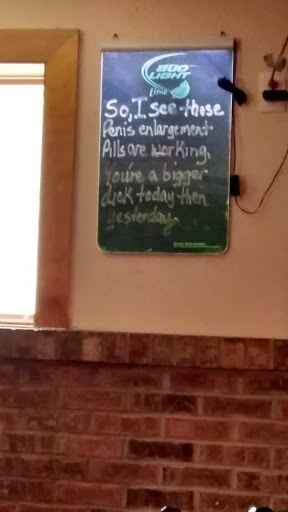 BUD
LIGHT
Lime
So, I see those
Penis enlargement
Pills are working,
You're a bigger
dick today then
yesterday.